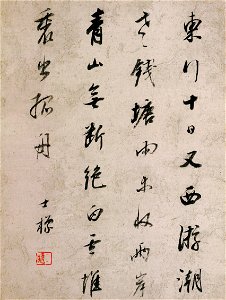 東行十日又西游潮
錢塘雨未收兩岸
青山無斷絕白雲堆
裏出孤舟 士標